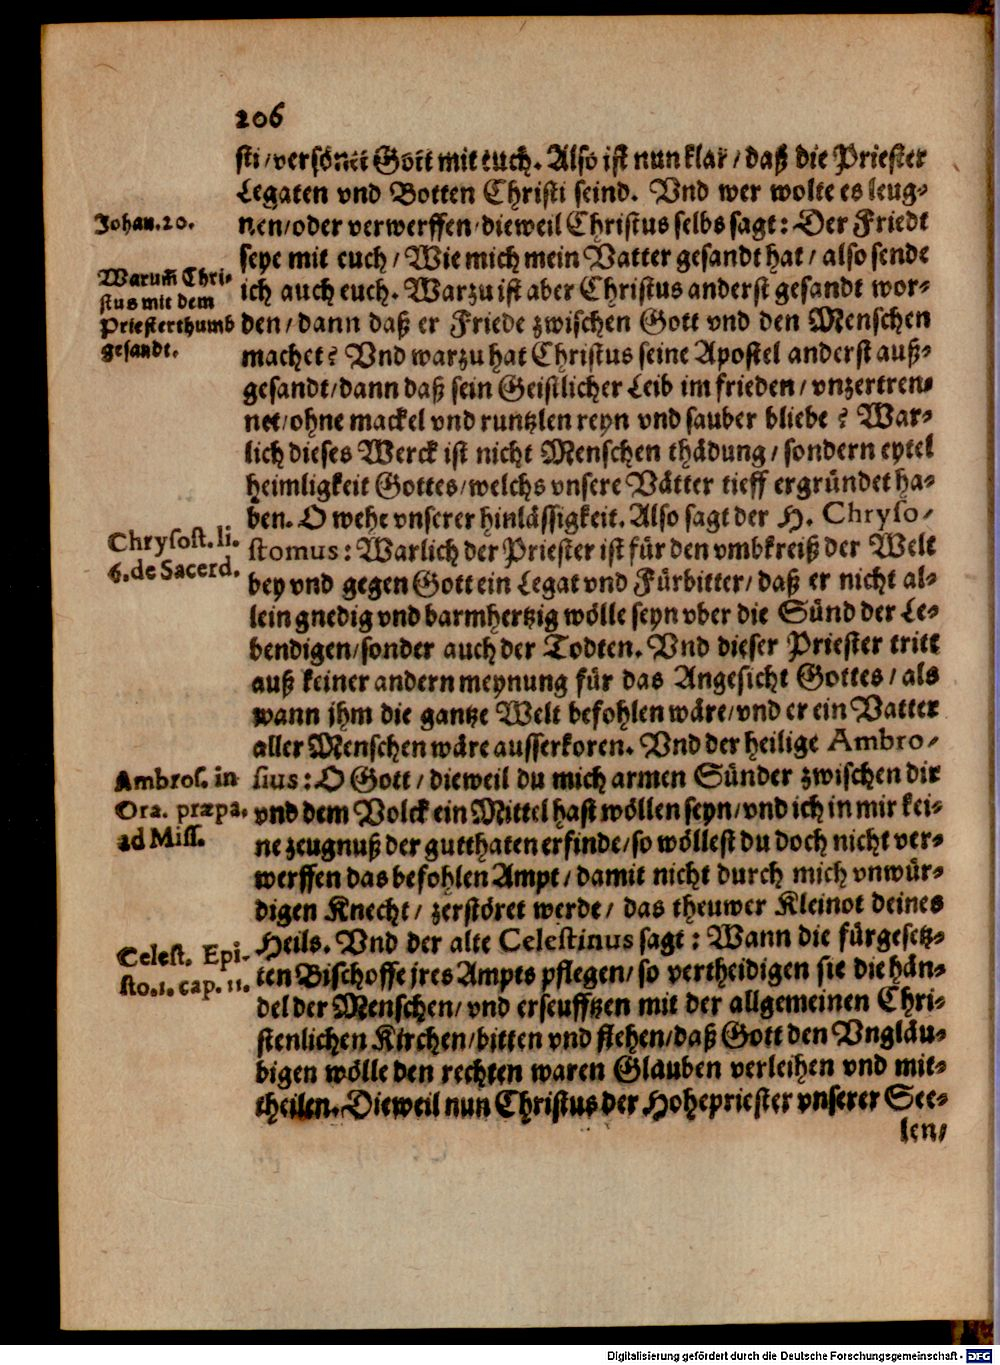 206
sti/versönet Gott mit euch. Also ist nun klar/daß die Priester
Legaten vnd Botten Christi seind. Vnd wer wolte es leug-
Johan.20.
nen/oder verwerffen/dieweil Christus selbs sagt: Der Friedt
seye mit euch/Wie mich mein Vatter gesandt hat/also sende
Warum̃ Chri-
stus mit dem
Priesterthumb
gesandt.
ich auch euch. Warzu ist aber Christus anderst gesandt wor-
den/dann daß er Friede zwischen Gott vnd den Menschen
machet? Vnd warzu hat Christus seine Apostel anderst auß-
gesandt/dann daß sein Geistlicher Leib im frieden/vnzertren-
net/ohne mackel vnd runtzlen reyn vnd sauber bliebe? War-
lich dieses Werck ist nicht Menschen thädung/sondern eytel
heimligkeit Gottes/welchs vnsere Vätter tieff ergründet ha-
ben. O wehe vnserer hinlässigkeit. Also sagt der H. Chryso-
Chrysost. li.
6. de Sacerd.
stomus: Warlich der Priester ist für den vmbkreiß der Welt
bey vnd gegen Gott ein Legat vnd Fürbitter/daß er nicht al-
lein gnedig vnd barmhertzig wölle seyn vber die Sünd der Le-
bendigen/sonder auch der Todten. Vnd dieser Priester tritt
auß keiner andern meynung für das Angesicht Gottes/als
wann jhm die gantze Welt befohlen wäre/vnd er ein Vatter
aller Menschen wäre ausserkoren. Vnd der heilige Ambro-
Ambros. in
Ora. præpa.
ad Miss.
sius: O Gott/dieweil du mich armen Sünder zwischen dir
vnd dem Volck ein Mittel hast wöllen seyn/vnd ich in mir kei-
ne zeugnuß der gutthaten erfinde/so wöllest du doch nicht ver-
werffen das befohlen Ampt/damit nicht durch mich vnwür-
digen Knecht/zerstöret werde/das theuwer Kleinot deines
Heils. Vnd der alte Celestinus sagt: Wann die fürgesetz-
Celest. Epi-
sto.1. cap. 11.
ten Bischoffe jres Ampts pflegen/so vertheidigen sie die hän-
del der Menschen/vnd erseufftzen mit der allgemeinen Chri-
stenlichen Kirchen/bitten vnd flehen/daß Gott den Vngläu-
bigen wölle den rechten waren Glauben verleihen vnd mit-
theilen. Dieweil nun Christus der Hohepriester vnserer See-
len/
Digitalisierung gefördert durch die Deutsche Forschungsgemeinschaft - DFG